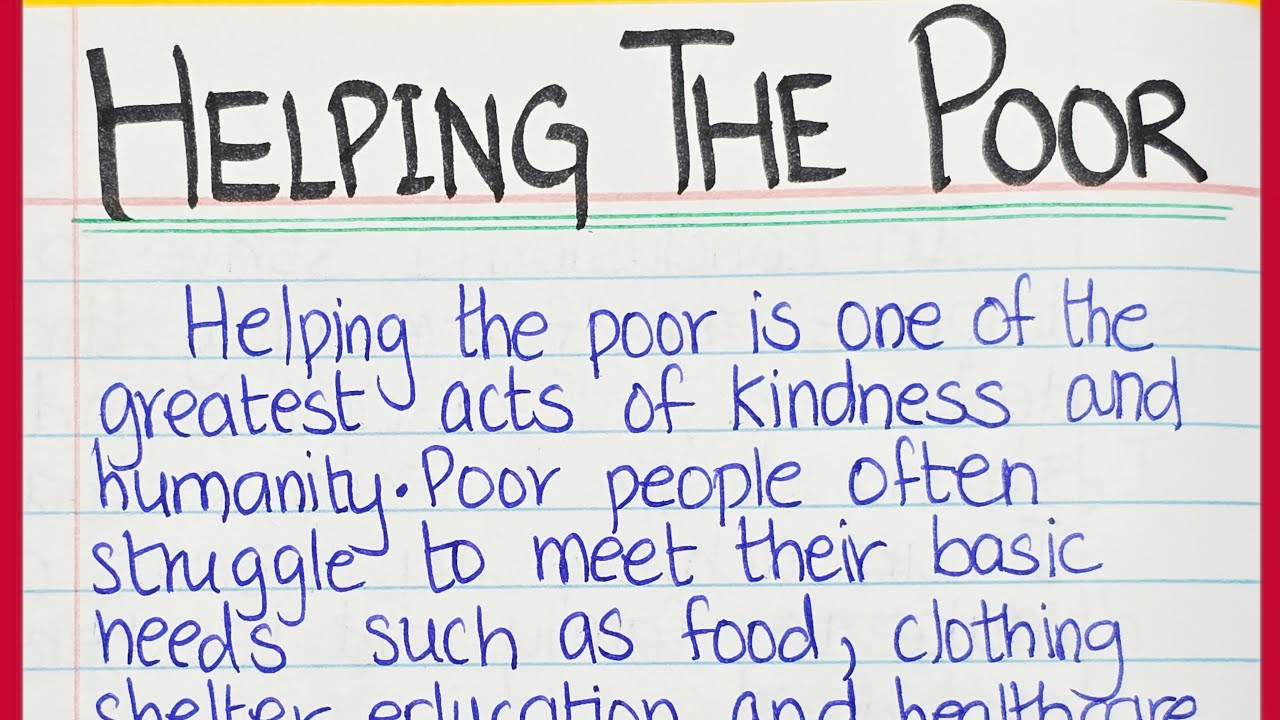 HELPING THE POOR
Helping the poor is one of the
greatest acts of kindness and
humanity. Poor people often
struggle to meet their basic
needs such as food, clothing
shelter education and healthcare